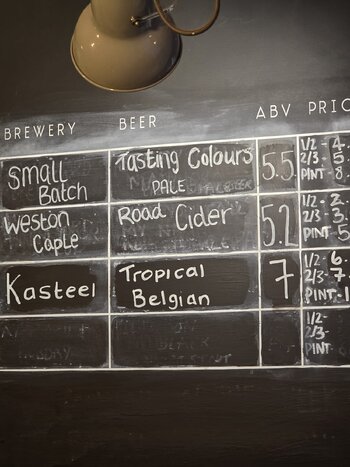 BREWERY BEER ABV PRIC
Small Batch
Tasting Colours
PALE
5.5
1/2 - 4.
2/3 - 5.
PINT - 8.
Weston Caple
Road Cider
5.2
1/2 - 2.
2/3 - 3.
PINT - 5
Kasteel
Tropical
Belgian
7
1/2 - 6.
2/3 - 7.
PINT - 1
1/2 -
2/3 -
PINT -